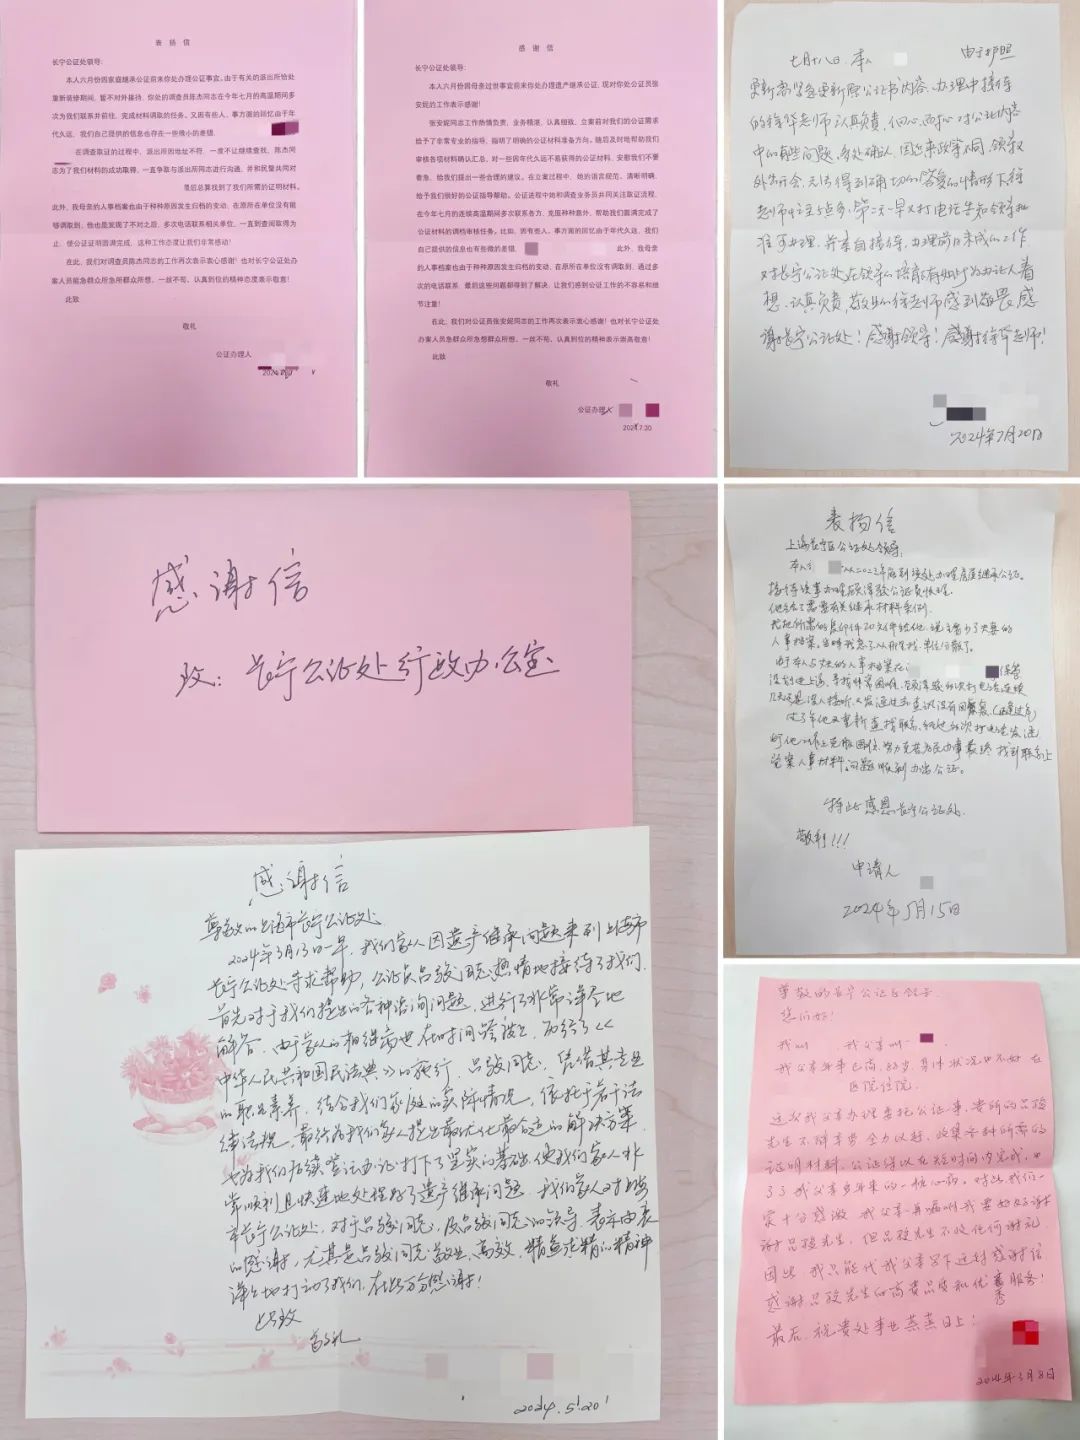 表 扬 信
长宁公证处领导:
本人六月份因家庭继承公证前来你处办理公证事宜。由于有关的派出所恰处
重新装修期间，暂不对外接待，你处的调查员陈杰同志在今年七月的高温期间多
次为我们联系并前往，完成材料调取的任务。又因有些人、事方面的回忆由于年
代久远，我们自己提供的信息也存在一些微小的差错，
在调查取证的过程中，派出所因地址不符，一度不让继续查找，陈杰同
志为了我们材料的成功取得，一直争取与派出所同志进行沟通，并和民警共同对
最后总算找到了我们所需的证明材料。
此外，我母亲的人事档案也由于种种原因发生归档的变动，在原所在单位没有能
够调取到，他也是发现了不对之后，多次电话联系相关单位，一直到查阅取得为
止，使公证证明圆满完成，这种工作态度让我们非常感动！
在此，我们对调查员陈杰同志的工作再次表示衷心感谢！也对长宁公证处办
案人员能急群众所急所群众所想、一丝不苟、认真到位的精神态度表示敬意！
此致
敬礼
公证办理人
感 谢 信
长宁公证处领导:
本人六月份因母亲过世事宜前来你处办理遗产继承公证，现对你处公证员张
安妮的工作表示感谢！
张安妮同志工作热情负责、业务精湛、认真细致，立案前对我们的公证需求
给予了非常专业的指导，指明了明确的公证材料准备方向，随后及时地帮助我们
审核各项材料确认汇总，对一些因年代久远不易获得的公证材料，安慰我们不要
着急，给我们提出一些合理的建议。在立案过程中，她的语言规范、清晰明确，
给予我们很好的公证指导帮助。公证进程中她和调查业务员共同关注取证流程，
在今年七月的连续高温期间多次联系各方，克服种种意外，帮助我们圆满完成了
公证材料的调档审核任务。比如，因有些人、事方面的回忆由于年代久远，我们
自己提供的信息也有些微的差错，
此外，我母亲
的人事档案也由于种种原因发生归档的变动，在原所在单位没有调取到，通过多
次的电话联系，最后这些问题都得到了解决，让我们感到公证工作的不容易和细
节注重！
在此，我们对公证员张安妮同志的工作再次表示衷心感谢！也对长宁公证处
办案人员急群众所急想群众所想、一丝不苟、认真到位的精神表示崇高敬意！
此致
敬礼
公证办理人
2024.7.30
七月十八日，本人 由于护照
更新需紧急更新原公证书内容，办理中接待
的徐华老师认真负责，细心、耐心对公证内容
中的有些问题，多处确认，因近来政策不同，领导
外出开会，无法得到确切的答复的情形下，徐
老师 第二天一早又打电话告知领导批
准可办理，并亲自接待，办理前日未成的工作
对长宁公证处在领导的培育 为办证人着
想，认真负责，敬业的徐老师感到敬畏，感
谢长宁公证处！感谢领导！感谢徐华老师！
2024年7月20日
感谢信
致：长宁公证处行政办公室
表扬信
上海长宁区公证处领导：
本人 从2023年 到该处办理房屋继承公证。
接待该事办理 公证员
他给了需要有关继承材料案例。
人事档案。
由于本人与丈夫的人事档案在 保管
过了年他又重新查找联系，
人事材料，问题顺利办出公证。
特此感恩长宁公证处
敬礼!!!
申请人
2024年5月15日
感谢信
尊敬的上海市长宁公证处
2024年3月13日一早，我们家人因遗产继承问题来到上海市
长宁公证处寻求帮助，公证员吕毅同志热情地接待了我们。
首先对于我们提出的各种咨询问题，进行了非常详尽地
解答。由于家人的相继离世在时间跨度上，历经了《
中华人民共和国民法典》的颁行。吕毅同志，凭借其专业
的职业素养，结合我们家庭的实际情况，依托于若干法
律法规，最终为我们家人提出最优化最合适的解决方案。
也为我们后续 办证打下了坚实的基础，使我们家人非
常顺利且快速地处理好了遗产继承问题。我们家人对上海
市长宁公证处，对于吕毅同志，及吕毅同志的领导，表示由衷
的感谢，尤其是吕毅同志敬业、高效、精益求精的精神
深深地打动了我们，在此万分感谢！
此致
敬礼
2024.5.20
尊敬的长宁公证处领导
您们好！
我叫 我父亲叫
我父亲年事已高，83岁，身体状况也不好 在
医院住院。
这次我父亲办理委托公证一事，贵所的吕毅
先生不辞辛劳 全力以赴，收集各种所需的
证明材料，公证得以在短时间内完成，也
了了我父亲多年来的一桩心病，对此我们一
家十分感激 我父亲再嘱咐我要好好谢
谢吕毅先生，但吕毅先生不收任何谢礼
因此 我只能代我父亲写下这封感谢信
感谢吕毅先生的高贵品质和优秀服务！
最后，祝贵处事业蒸蒸日上！
2024年3月8日